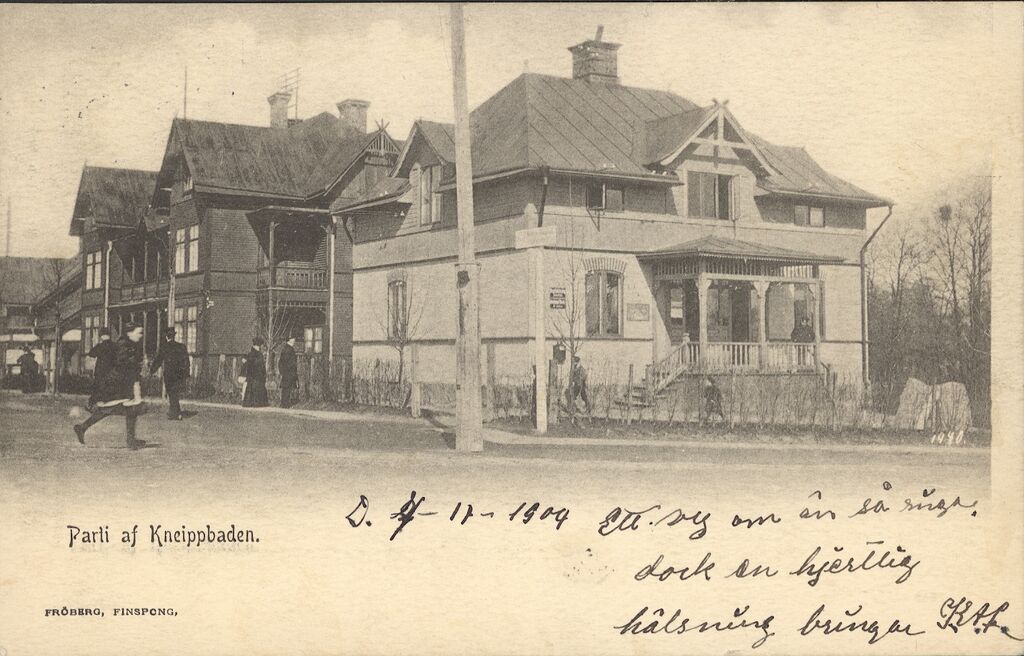 1940
D. 4/- 11 - 1904 Ett. vy om än så ringa,
Parti af Kneippbaden.
dock en hjertlig
FRÖBERG, FINSPONG,
hälsning bringar